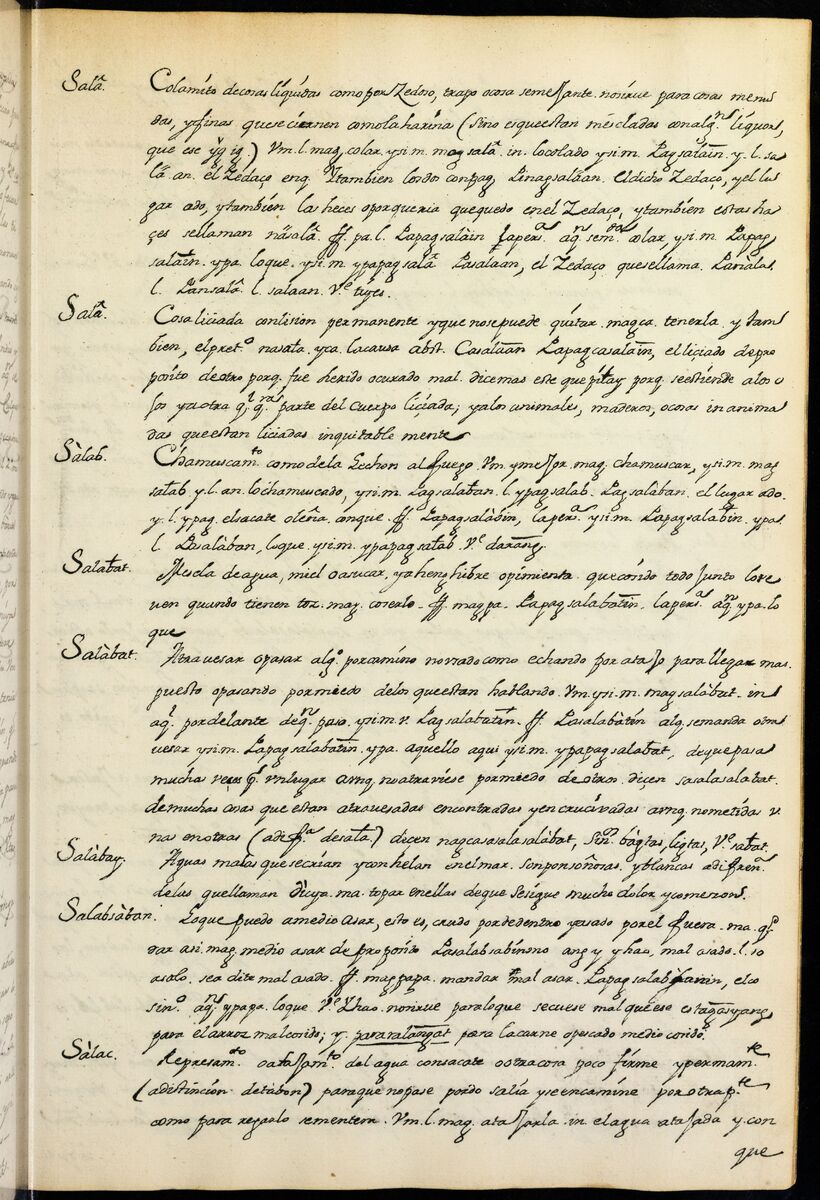 Salã. Colamito de cosas liquidas como por Zedaso, trapo o cosa semejante. no sirue para cosas menu
das, y finas que se ciernen como la harina (sino es que estan mescladas con alg.n liquor,
que ese y͠g ig.) Vm. l. mag, colar, y si. m. mag salã. in. lo colado y si. m. Pag salãin. y. l. sa
lã. an. el Zedaço en q. Y tambien los dos con pag, Pinagsalãan. el dicho Zedaço, y el lu
gar ado, y tambien las heces o porqueria que quedo en el Zedaço, y tambien estas ha
çes se llaman nãsalã. ff. pa. l. Papagsalàin la pers.a aq.n sem.da colar, y si. m. Papag
salãin. y pa. lo que. y si. m. ypapagsalã. Pasalaan, el Zedaço que se llama. Panalas
l. Pansalã. l. salaan. V.e tiyes.
Salã. Cosa liciada con lision permanente y que no se puede quitar. magca. tenerla. y tam
bien, el pret.o nasala. y ca. la causa abst. Casalãan Papagcasalãin, el liciado de pro
posito de otro porq. fue herido o curado mal. dice mas este que pilay porq. se estiende a los o
jos y a otra q.l q.ra parte del cuerpo liçiada; y a los animales, maderos, o cosas inanima
das que estan liciadas inquitable mente
Sàlab. Chamuscam.to como de la Lechon al fuego. Vm. y mejor. mag. chamuscar, y si. m. mag
salab. y. l. an. lo chamuscado, y si. m. Pag salaban. l. y pag salab. Pagsalaban. el lugar ado.
y. l. y pag. el sacate o leña. con que. ff. Papagsalàbin, la pers.a y si. m. Papagsalabin. y pa.
l. Pasalàban, lo que. y si. m. ypapagsalab. V.e darang.
Salabat. Mescla de agua, miel o asucar, y a henghibre o pimienta. que cosido todo junto lo ve
uen quando tienen tos. mag. coserlo. ff. mag pa. Papag salabatin. la pers.a aq.n y pa. lo
que
Salàbat. Atrauesar o pasar alg.o por camino no vsado como echando por atajo para llegar mas
puesto o pasando por miedo de los que estan hablando. Vm. y si. m. mag salàbat. in
aq.l por delante de q.n paso. y si. m. v. Pag salabatin. ff. Pasalabàtin alq. se manda atra
uesar y si. m. Papag salabatin. y pa. aquello aqui y si. m. ypapag salabat, de que pasa
mucha veces p.r vn lugar aunq. no atraviese por miedo de otros. diçen sasalasalabat.
de muchas cosas que estan atravesadas encontradas y encrucivadas aunq. no metidas v.
nas en otras (a dif.a de salã.) dicen nagcasasalasalàbat, Sin.o bàgtas, ligtas, V.e sabat.
Salàbay. Aguas malas que se crian y conhelan en el mar. son ponsoñosas. y blancas a difren.a
de las que llaman dicya. ma. topar en ellas de que se sigue mucho dolor y comeson.
Salabsàban. Lo que quedo a medio asar, esto es, crudo por de dentro y asado por el fuera. ma. q.e
dar asi. mag. medio asar de proposito Pasalabsabinsno ang y yhao, mal asado. l. so
asalo. sea dite mal asado. ff. magpapa. mandar mal asar. Papag salabsavin, el co
sin.o aq.n y papa. lo que V.e Yhao. no sirue para lo que se cuese mal que ese estagasyang
para el arroz mal cosido; y. pararalangat para la carne o pescado medio cosido.
Sàlac. Represam.to o atajam.to del agua con sacate o otra cosa poco firme y perman.te
(a distincion de tabon) para que no pase por do salia y se encamine por otra p.te
como para regalo sementera. Vm. l. mag. atajarla. in. el agua atajada y. con
que